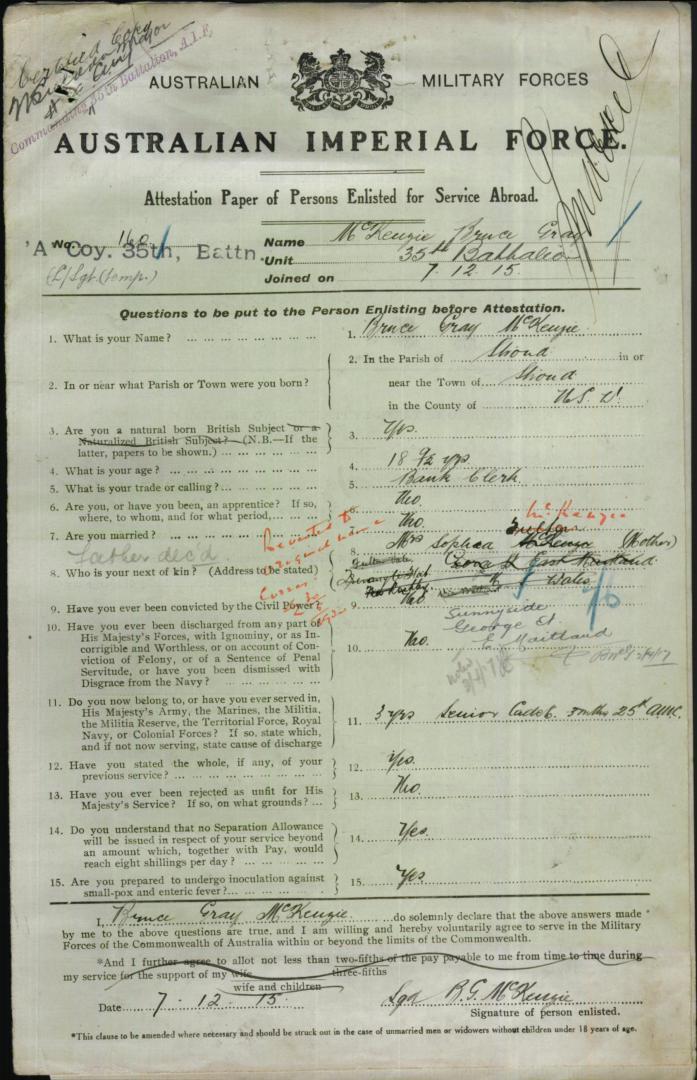 Certified Copy
Commanding 35th Battalion, A.I.F.
AUSTRALIAN MILITARY FORCES
AUSTRALIAN IMPERIAL FORCE.
Attestation Paper of Persons Enlisted for Service Abroad.
No. 160
'A' Coy. 35th, Battn.
(L/Sgt. (temp.)
Name McKenzie Bruce Gray
Unit 35th Battalion
Joined on 7.12.15.
Questions to be put to the Person Enlisting before Attestation.
1. What is your Name? ... 1. Bruce Gray McKenzie.
2. In or near what Parish or Town were you born? 2. In the Parish of Stroud in or
near the Town of Stroud
in the County of N.S.W.
3. Are you a natural born British Subject or a
Naturalized British Subject? (N.B.—If the
latter, papers to be shown.) ... 3. Yes.
4. What is your age? ... 4. 18 9/12 yrs
5. What is your trade or calling? ... 5. Bank Clerk.
6. Are you, or have you been, an apprentice? If so,
where, to whom, and for what period, ... 6. No
7. Are you married? ... 7. No.
Father dec'd
Reverted to
original name
McKenzie
8. Who is your next of kin? (Address to be stated) 8. Mrs Sophia McKenzie (Mother)
East Maitland
Wales
9. Have you ever been convicted by the Civil Power? 9. No
Sunnyside
George St
E. Maitland
10. Have you ever been discharged from any part of
His Majesty's Forces, with Ignominy, or as In-
corrigible and Worthless, or on account of Con-
viction of Felony, or of a Sentence of Penal
Servitude, or have you been dismissed with
Disgrace from the Navy? ... 10. No.
11. Do you now belong to, or have you ever served in,
His Majesty's Army, the Marines, the Militia,
the Militia Reserve, the Territorial Force, Royal
Navy, or Colonial Forces? If so, state which,
and if not now serving, state cause of discharge 11. 3 yrs Senior Cadets. 3 mths 25th AMC.
12. Have you stated the whole, if any, of your
previous service? ... 12. Yes.
13. Have you ever been rejected as unfit for His
Majesty's Service? If so, on what grounds? ... 13. No.
14. Do you understand that no Separation Allowance
will be issued in respect of your service beyond
an amount which, together with Pay, would
reach eight shillings per day? ... 14. Yes.
15. Are you prepared to undergo inoculation against
small-pox and enteric fever? ... 15. Yes
I, Bruce Gray McKenzie. do solemnly declare that the above answers made
by me to the above questions are true, and I am willing and hereby voluntarily agree to serve in the Military
Forces of the Commonwealth of Australia within or beyond the limits of the Commonwealth.
*And I further agree to allot not less than two-fifths of the pay payable to me from time to time during
three-fifths
my service for the support of my wife
wife and children
Date 7.12.15. Sgd B.G. McKenzie
Signature of person enlisted.
*This clause to be amended where necessary and should be struck out in the case of unmarried men or widowers without children under 18 years of age.